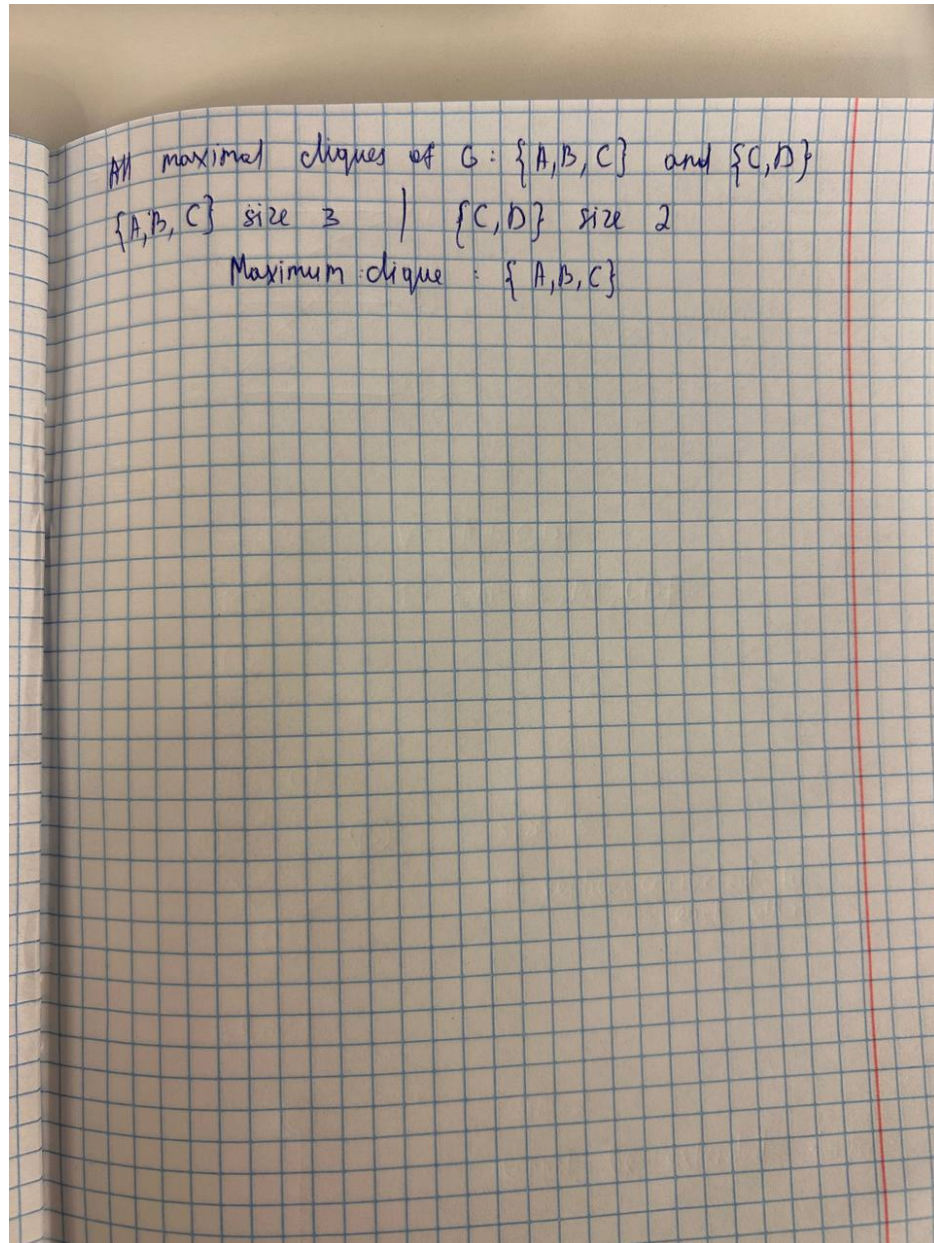 All maximal cliques of G: {A,B,C} and {C,D}
{A,B,C} size 3 | {C,D} size 2
Maximum clique : {A,B,C}